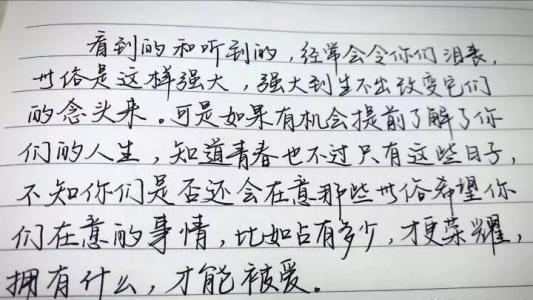 看到的和听到的，经常会令你们沮丧，
世俗是这样强大，强大到生不出改变它们
的念头来。可是如果有机会提前了解了你
们的人生，知道青春也不过只有这些日子，
不知你们是否还会在意那些世俗希望你
们在意的事情，比如占有多少，才更荣耀，
拥有什么，才能被爱。